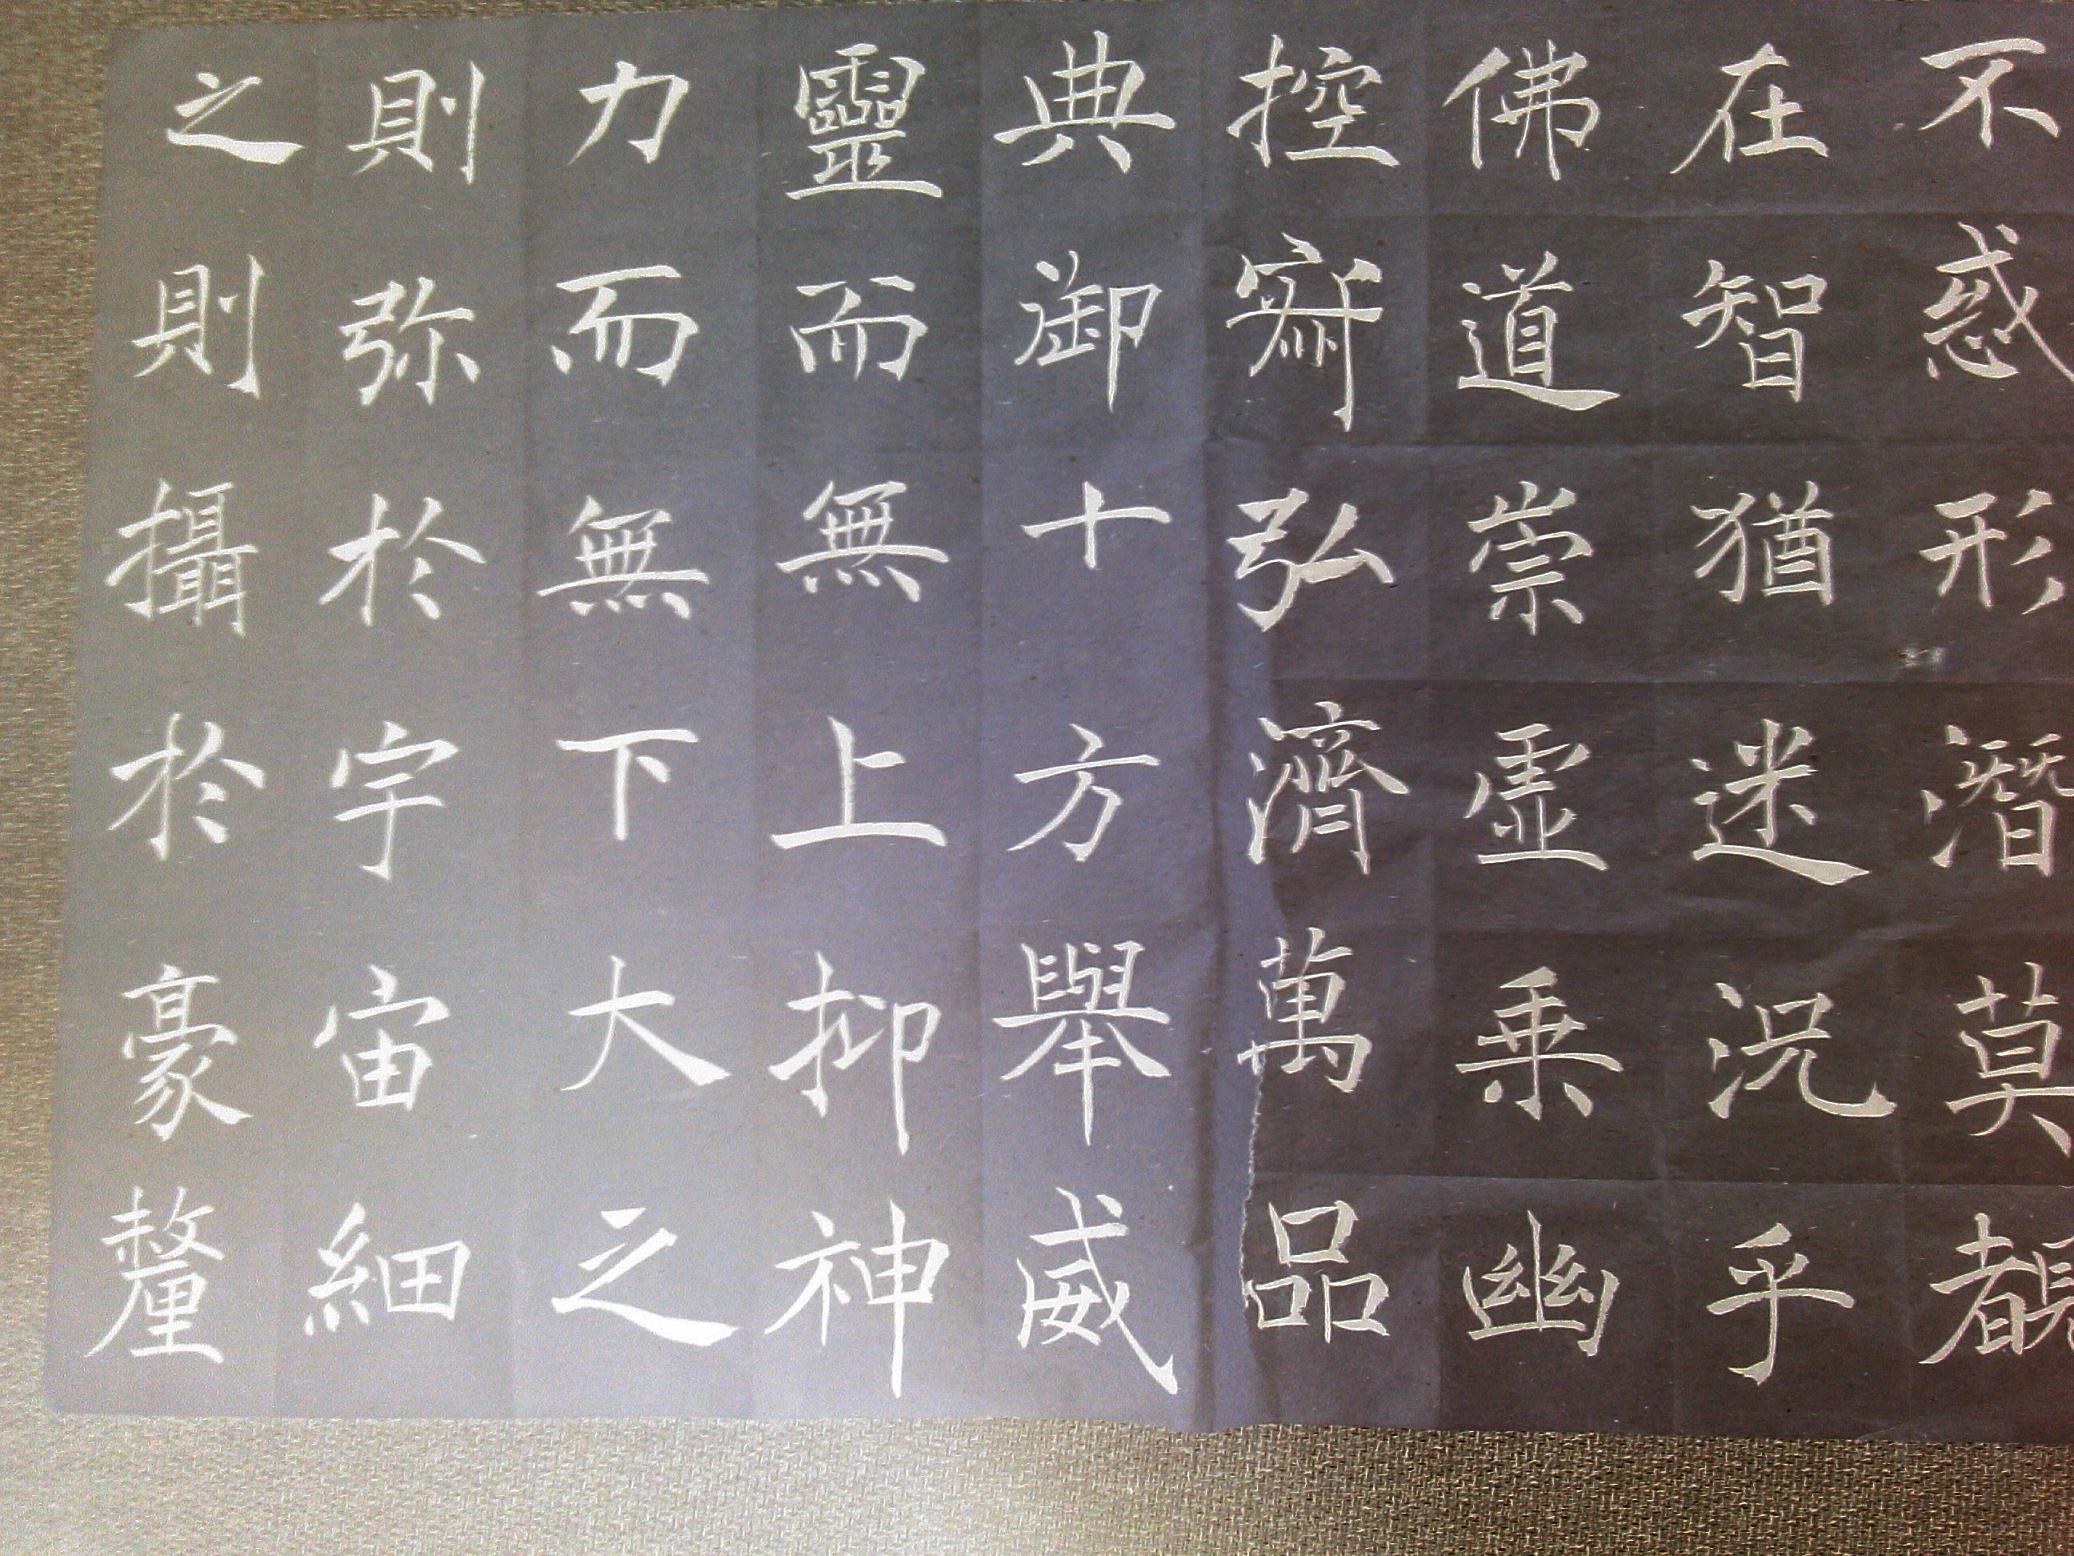 不惑形潛莫覩
在智猶迷況乎
佛道崇虛乗幽
控寂弘濟萬品
典御十方舉威
靈而無上抑神
力而無下大之
則弥於宇宙細
之則攝於豪釐